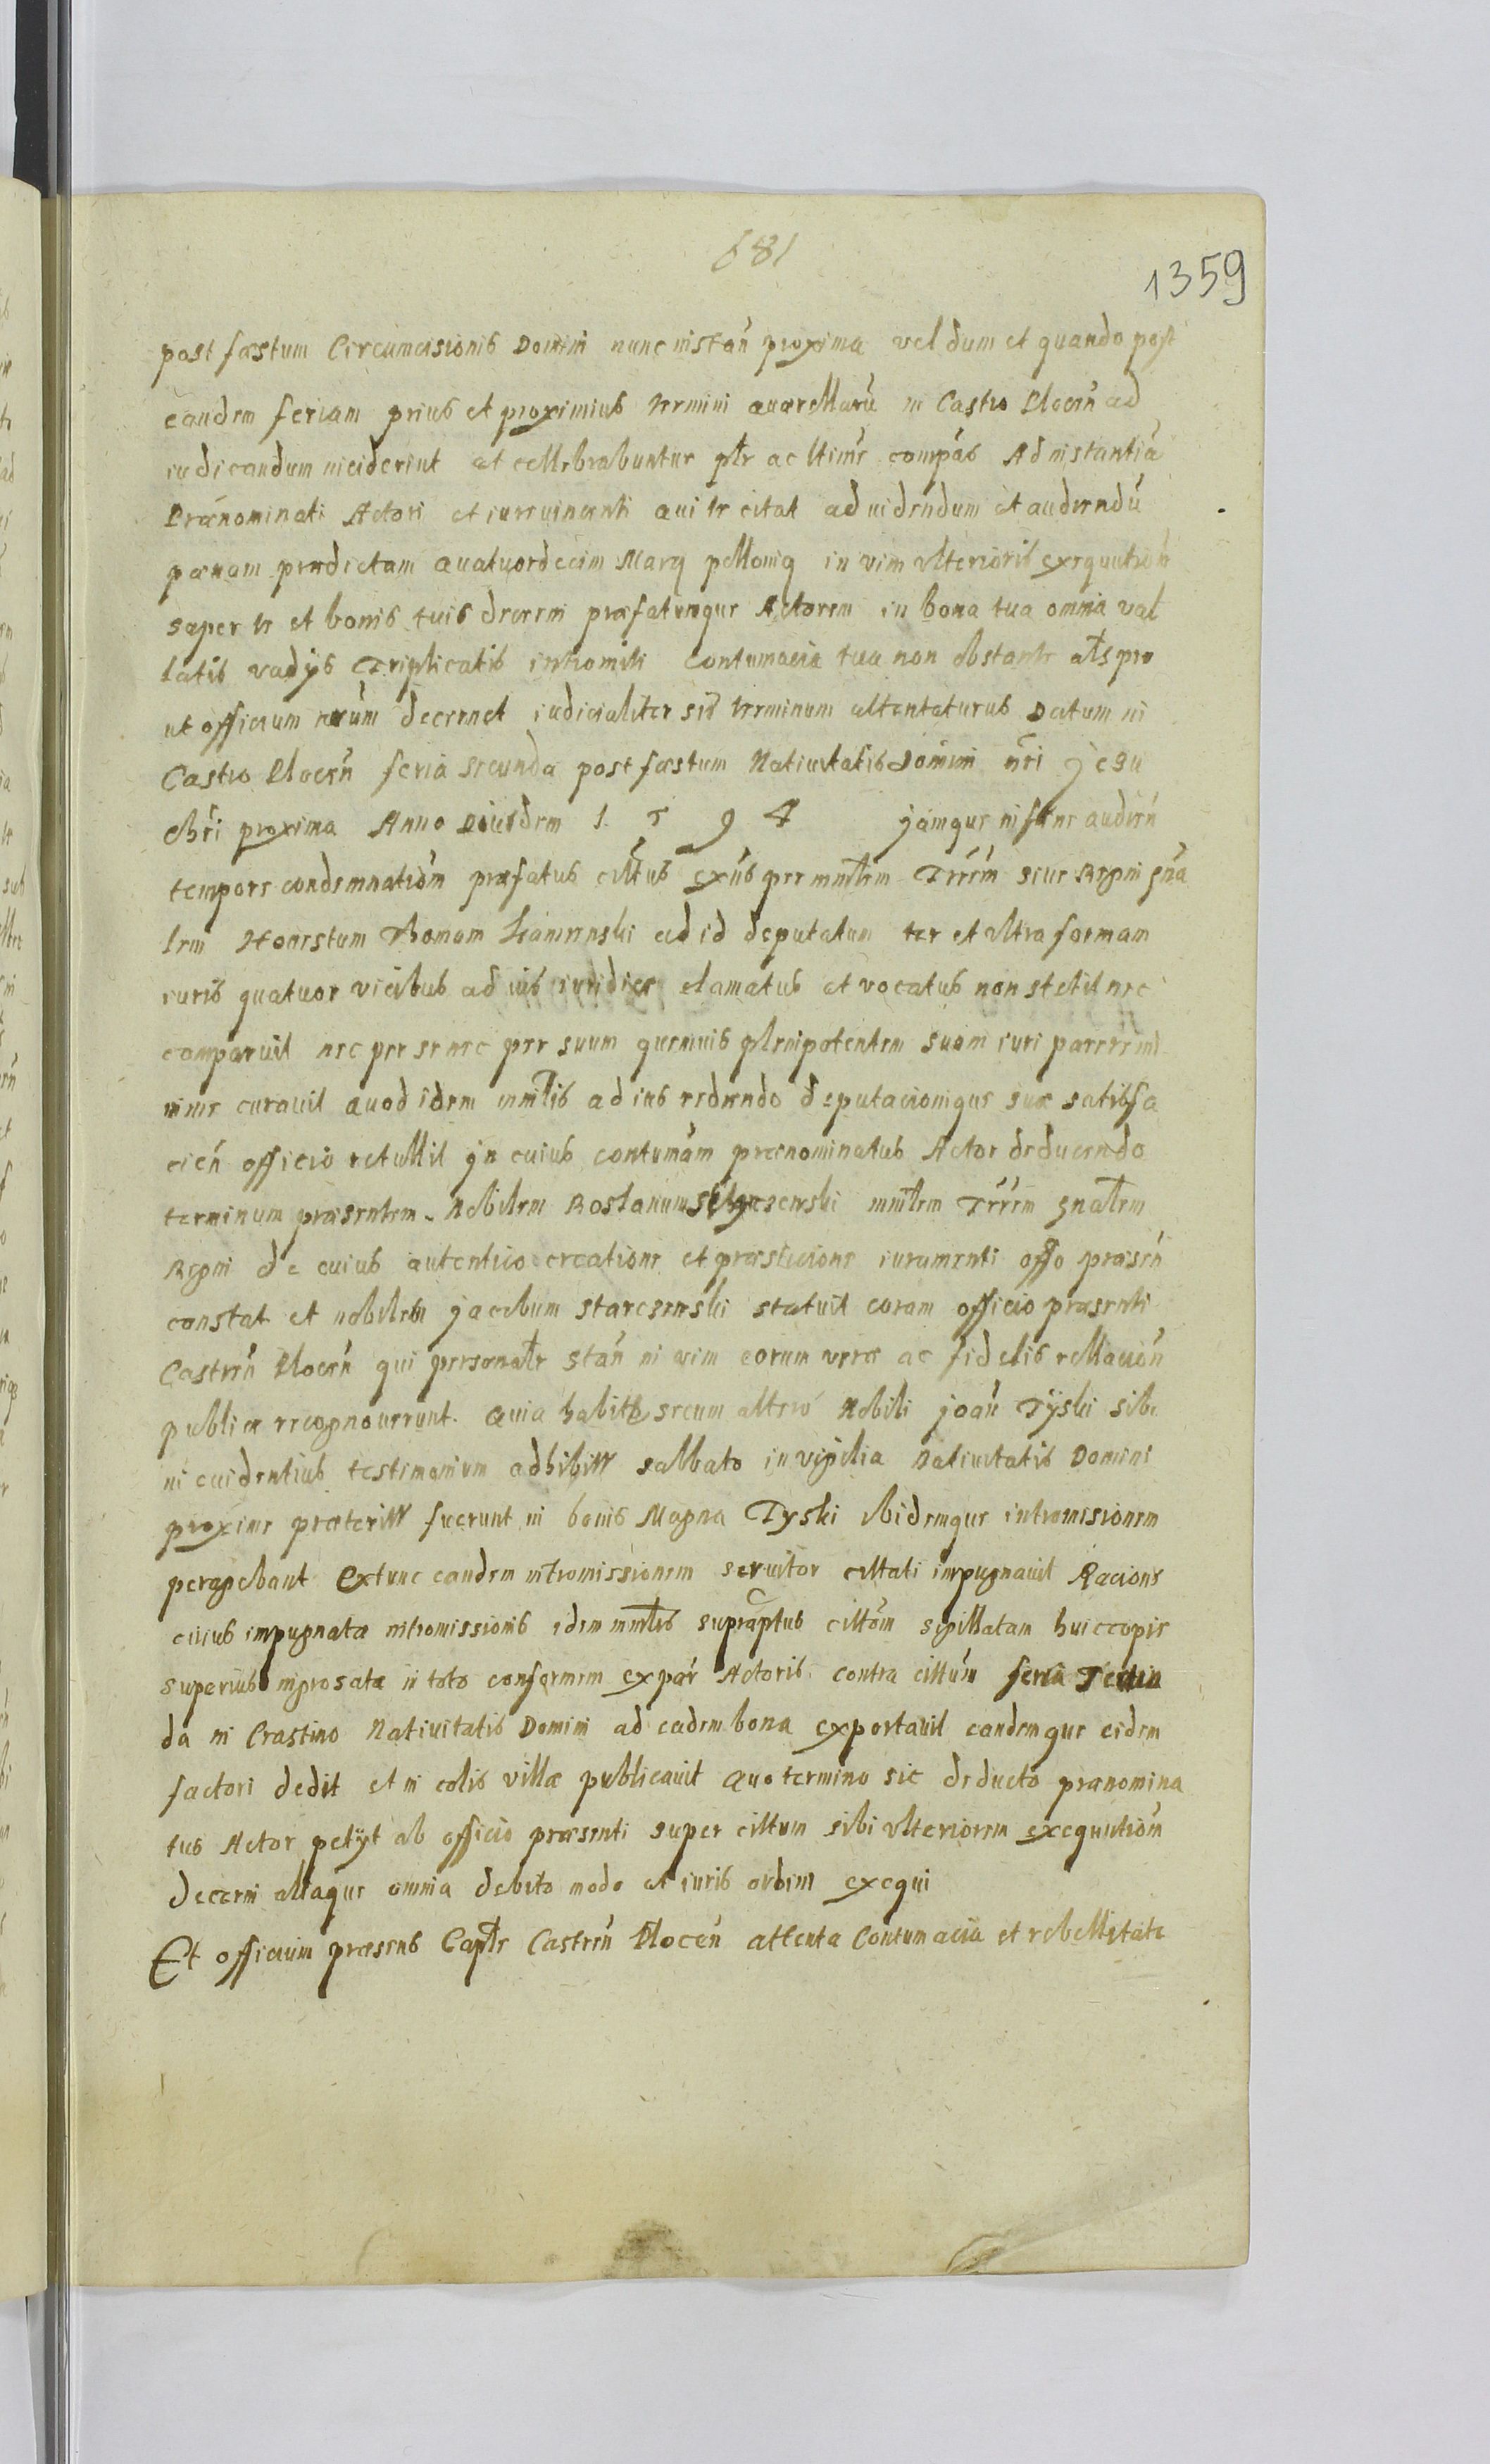 681
1359
post fæstum Circumcisionis Domini nunc instań proxima vel dum et quando post
eandem feriam prius et proximius termini quærellarũ in Castro Plocen̄ ad
iudicandum inciderint at cellebrabuntur ptr ac ltime compás Ad instantiã
Prænominati Actori et iureuincenti qui te citat ad uidendum et audiendũ
pœnam prædictam quatuordecim Marcq pollonicq in vim vlterioris exequutionis
super te et bonis tuis decerni præfatumque Actorem in bona tua omnia val
latis vadijs Triplicatis intromitti contumacia tua non obstante als pro
ut officium decernet iudicialiter sis terminum attentaturus Datum in
Castro Plocen̄ feria secunda post fæstum Natiuitatis Domini nr̄i Jesu
Chr̄i proxima Anno eiusdem 1 5 9 4 Jamque instanr audień
tempore condemnatiom præfatus cittus exn̄s per mnr̄lem Trr̄em siue Regni gn̄a
lem Honestum Thomam Kamienski ad id deputatum ter et vltra formam
iuris quatuor vicibus ad ius iuridice clamatus et vocatus non stetit nec
comparuit nec per se nec per suum quemuis plenipotentem suom iuri parere mi
nime curauit quod idem mnr̄lis ad ius redeundo deputacionique suæ satisfa
cień officio retullit Jn cuius contumám prænominatus Actor deducendo
terminum præsentem Nobilem Rostanum mnr̄lem Trr̄em gnatem
Regni de cuius autentico creatione et præsticione iuramenti offo præsen̄
constat et nobilem Jacobum Starczewski statuit coram officio præsenti
Castren̄ Plocen̄ qui personatr stań in vim eorum veræ ac fidelis rellacion̄
publice recognouerunt. Quia habitto secum altero Nobili Joan̄ Tÿski sibi
in euidentius testimonium adhibitto sabbato in vigilia Natiuitatis Domini
proxime præteritto fuerunt in bonis Magna Tyski ibidemque intromisionem
peragebant Extunc eandem intromissionem seruitor cittati impugnauit Racione
cuius impugnatæ intromissionis idem mnr̄lis supraptus cittom sigillatam huic copiæ
superius ingrosatæ in toto conformem ex par Actoris contra cittum feria Secun
da in Crastino Natiuitatis Domini ad eadem bona exportauit eandemque eidem
factori dedit et in colis villæ publicauit Quo termino sic deducto prænomina
tus Actor petijt ab officio præsenti super cittum sibi vlteriorem exequutiom
decerni aliaque omnia debito modo et iuris ordine exequi
Et officium præsens Captr Castren̄ Plocen̄ attenta Contumacia et rebellitate